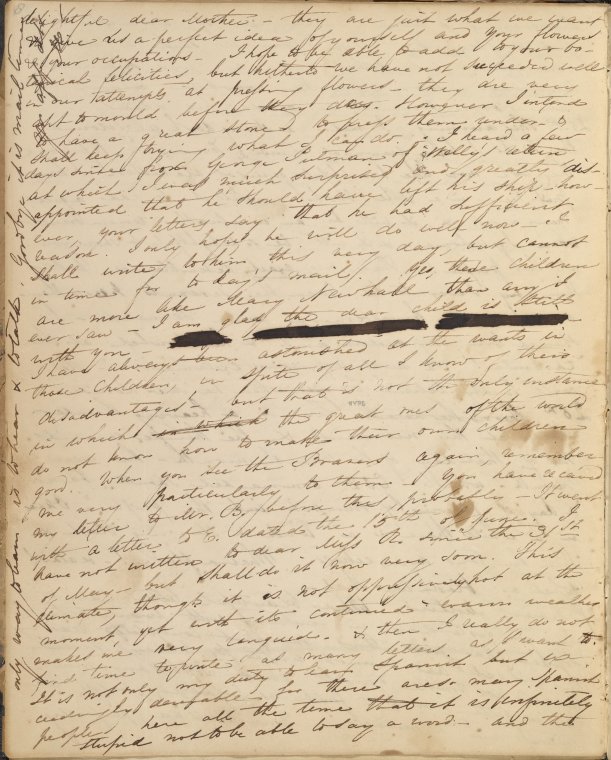 delightful dear Mother - they are just what we want
& give us a perfect idea of yourself and your flowers
& your occupations - I hope to be able to add to your bo-
tanical felicities, but hitherto we have not succeeded well
in our attempts at pressing flowers - they are very
apt to mould before they dry. However I intend
to have a great stone to press them under &
shall keep trying what I can do. I heard a few
days since from George Putman of Welly's return
at which I was much surprised and greatly dis-
appointed that he should have left his ship - how-
ever, your letters say that he had sufficient
reason. I only hope he will do well now - I
shall write to him this very day, but cannot
in time for to day's mail. Yes, these children
are more like Mary Newhall than any I
ever saw - I am glad the dear child is still
with you -
I have always been astonished at the wants in
those children, in spite of all I know of their
disadvantages, but that is not the only instance
in which in which the great ones of the world
do not know how to make their own children
good. When you see the again, remember
me very particularly to them - You have received
my letter to Mr. B. before this probably - It went
with a letter to E. dated the 15th of June. I
have not written to dear Miss R. since the 31st
of May - but shall do it now very soon. This
climate though it is not oppressively hot at the
moment, yet with its continued warm weather
makes me very languid - & then I really do not
find time to write as many letters as I want to.
It is not only my duty to learn Spanish but is
exceedingly desirable - for there are so many Spanish
people here all the time that it is infinitely
stupid not to be able to say a word - and the
only way to learn is to hear & to talk. Good bye it is mail time